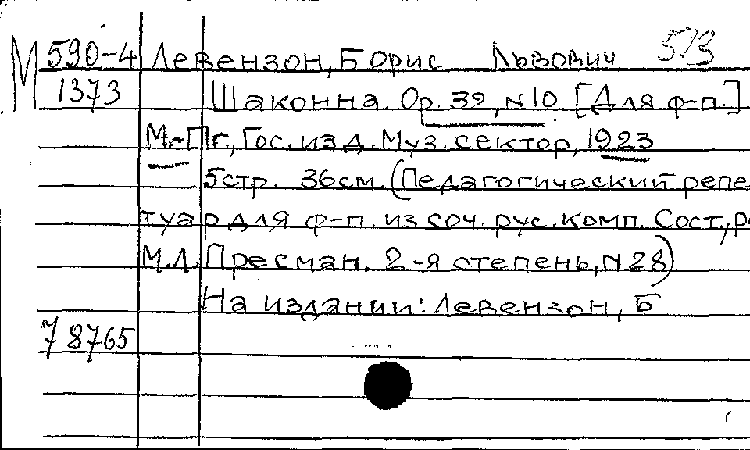 М 590-4 Левензон, Борис Львович 513
1373 Шаконна. Ор. 39, N10 [Для ф-п.]
М.-Пг., Гос. изд. Муз. сектор, 1923
5стр. 36см. (Педагогический репе
туар для ф-п. из соч. рус. комп. Сост., р
М.Л. Пресман. 2-я степень, N28)
На издании: Левензон, Б
78765